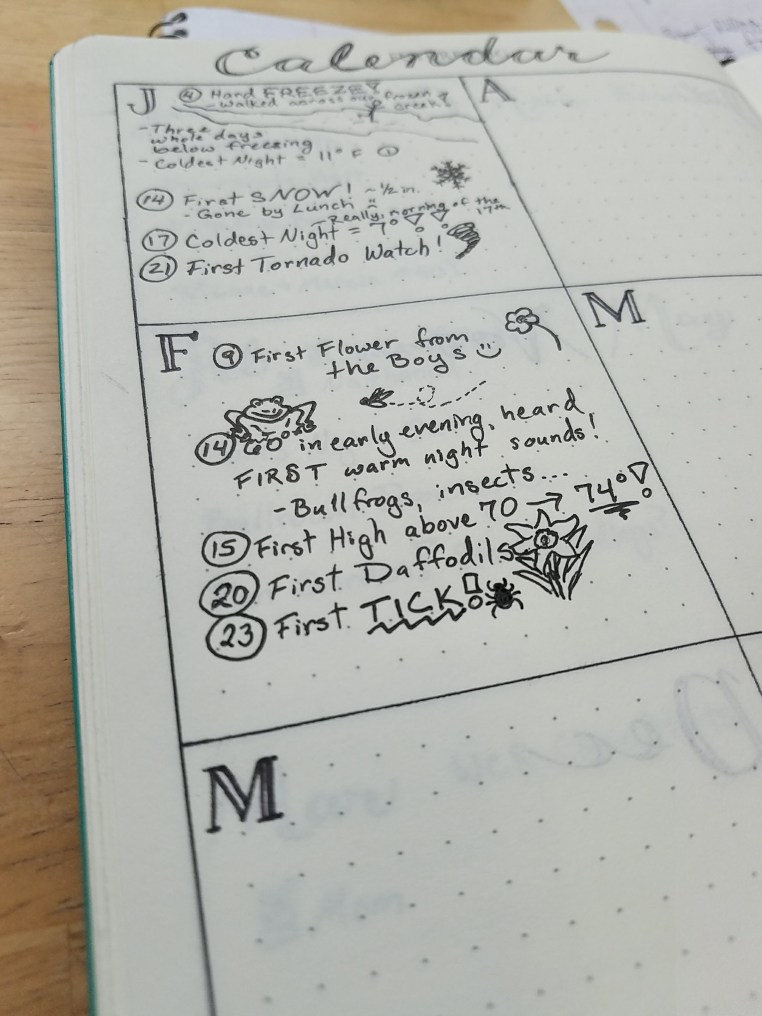 Calendar
J
④ Hard FREEZE!
- Walked across our frozen creek!
- Three whole days
below freezing
- Coldest Night = 11° F
⑭ First SNOW! ~ ½ in.
- Gone by Lunch
- Really, morning of the 17th
⑰ Coldest Night = 7°
㉑ First Tornado Watch!
A
F
⑨ First Flower from
the Boys
⑭ in early evening, heard
FIRST warm night sounds!
- Bullfrogs, insects...
⑮ First High above 70 → 74°!
⑳ First Daffodils
㉓ First TICK!
M
M